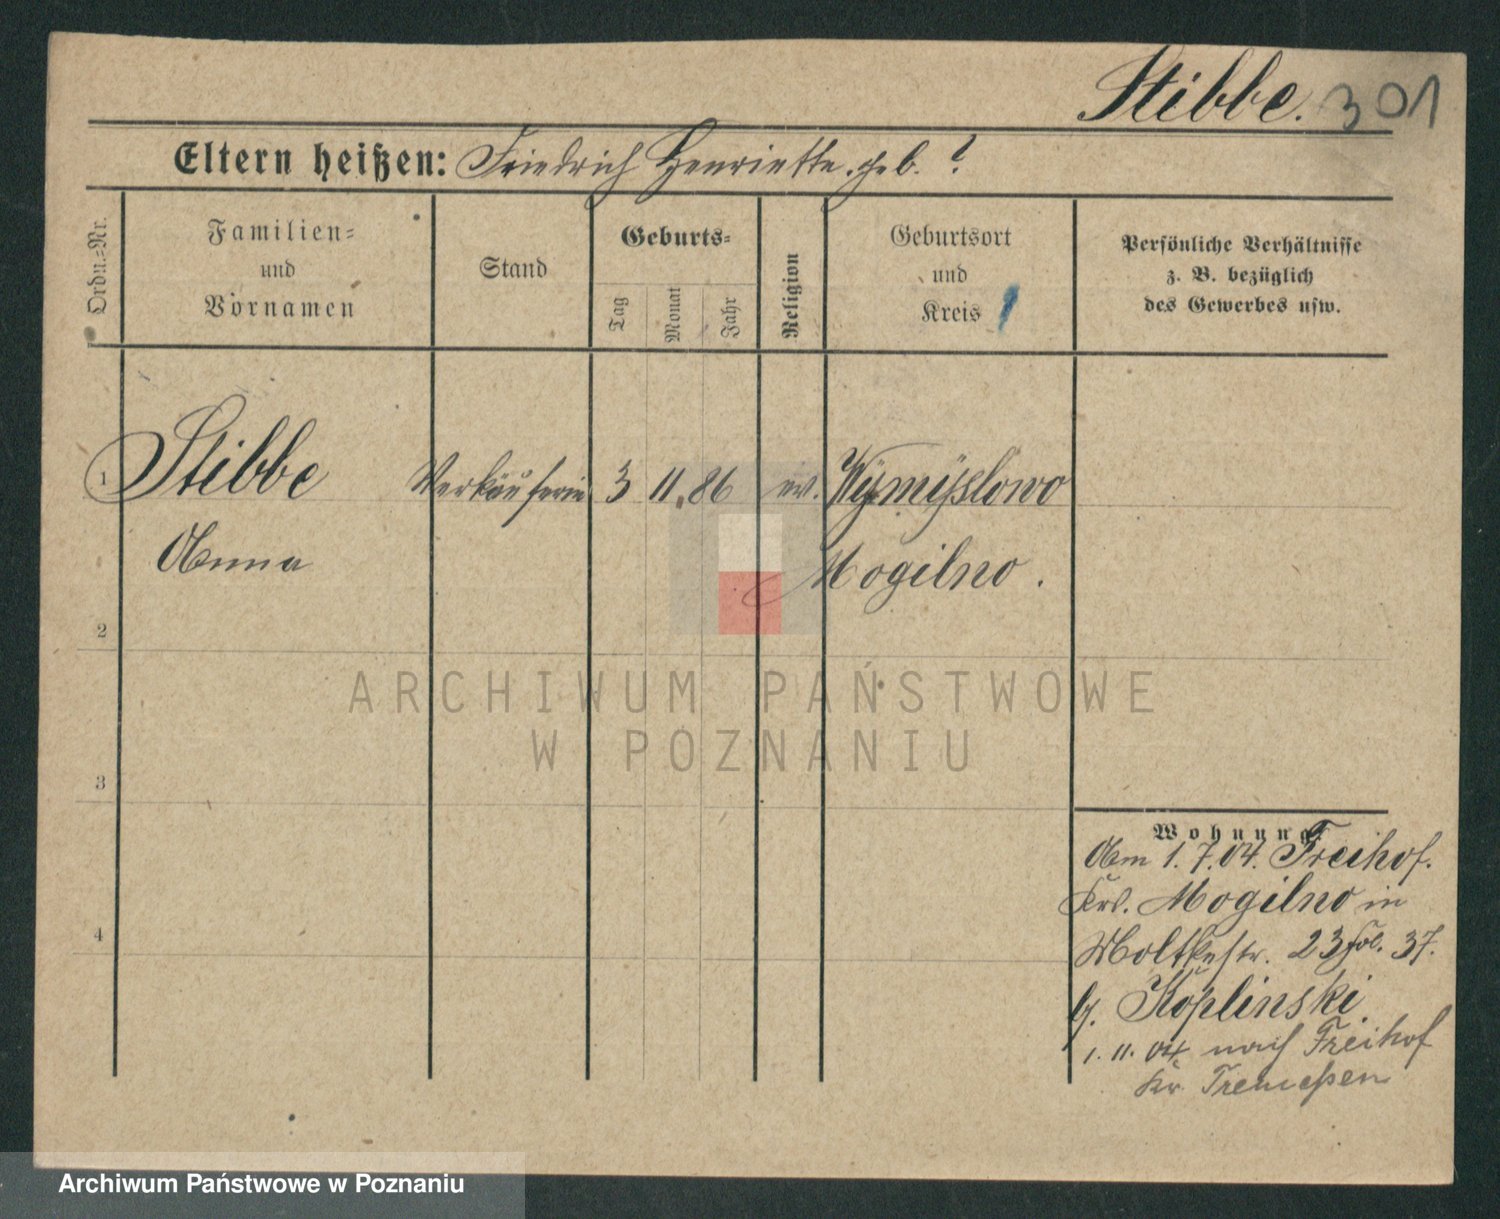 Stibbe. 301
Eltern heißen: Friedrich Henriette. geb. ?
Ordn.=Nr.
Familien=
und
Vornamen
Stand
Geburts=
Tag
Monat
Jahr
Religion
Geburtsort
und
Kreis
Persönliche Verhältnisse
z. B. bezüglich
des Gewerbes usw.
1 Stibbe Verkäuferin 3 11. 86 ev. Wymyslowo
Anna Mogilno.
2
3
4
Wohnung.
Am 1.7.04. Freihof.
Krs. Mogilno in
Moltkestr. 23 Fol. 37.
b. Koplinski
1.11.04 nach Freihof
Kr. Tremessen
ARCHIWUM PAŃSTWOWE
W POZNANIU
Archiwum Państwowe w Poznaniu